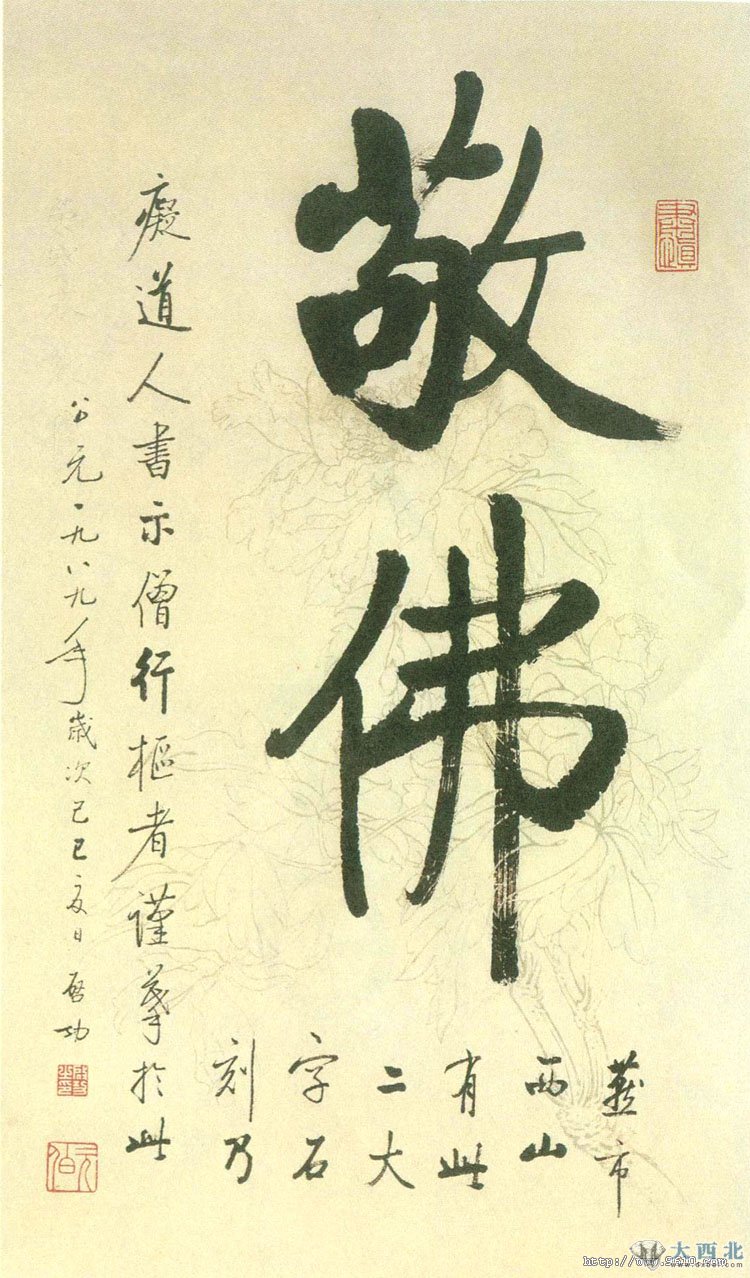 敬佛
燕市
西山
有此
二大
字石
刻乃
癡道人書示僧行樞者謹摹於此
公元一九八九年歲次己巳夏日 啓功
大西北